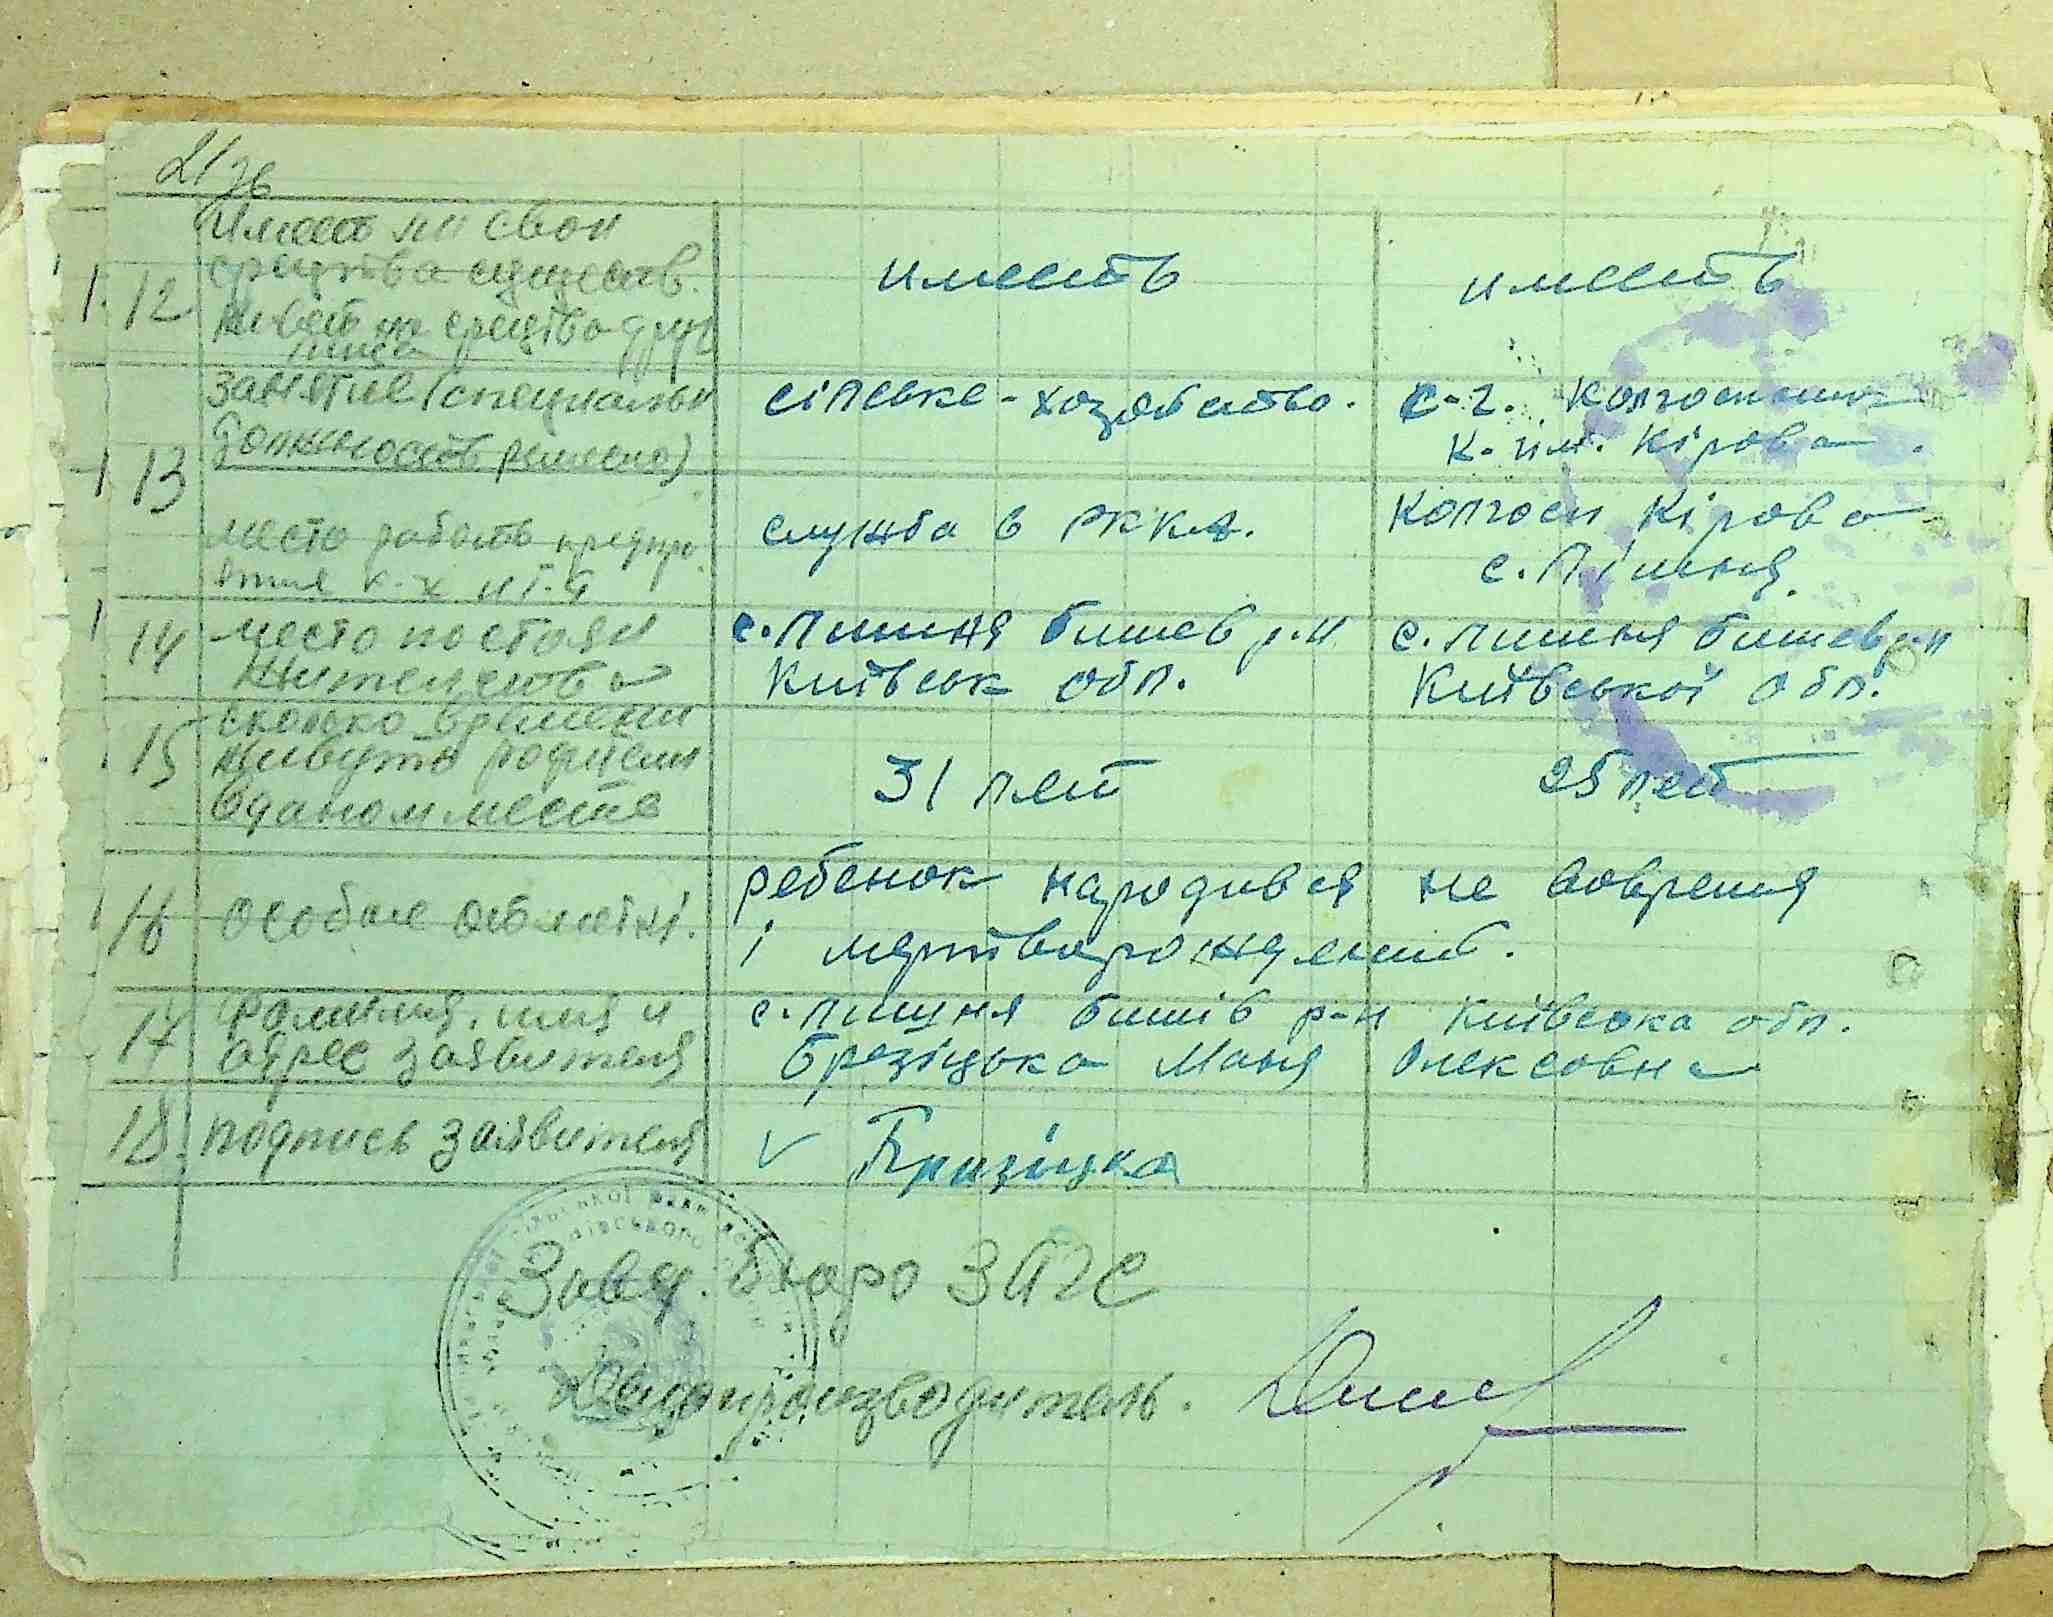 21 зв
12 Имеет ли свои
средства существ.
живет на средства друг
лица
иместь иместь
13 занятие (специальн
должность ремесло)
сільське-хозяйство. с-г. колгоспниця
к. ім. Кірова.
место работы предпри
ятия к-х и т.д
служба в РККА. колгосп Кірова
с. Пішня.
14 место постоян
жительства
с. Пишня Бишев р.н с. Пишня Бишев р-н
Київськ обл. Київської обл.
15 сколько времени
живуть родители
в даном месте
31 лет 25 лет
16 особые отметкі.
ребенок народився не вовремя
і мертворожденый.
17 фамилия, имя и
адрес заявителя
с. Пишня Бишів р-н Київська обл.
Брезіцька Маня Олексовна
18. подпись заявителя
V Бризіцка
Завед. бюро ЗАГС
Делопроизводитель.